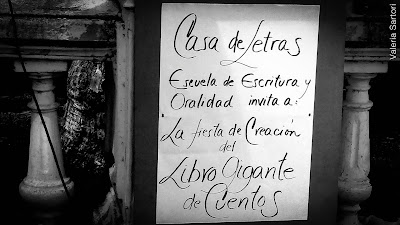 Casa de Letras
Escuela de Escritura y
Oralidad invita a:
La fiesta de Creación
del
Libro Gigante
de Cuentos
Valeria Sartori